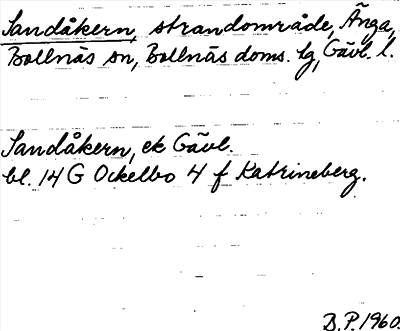 Sandåkern, strandområde, Änga,
Bollnäs sn, Bollnäs doms. lg, Gävl. l.
Sandåkern, ek Gävl.
bl. 14 G Ockelbo 4 f Katrineberg.
B.P. 1960.